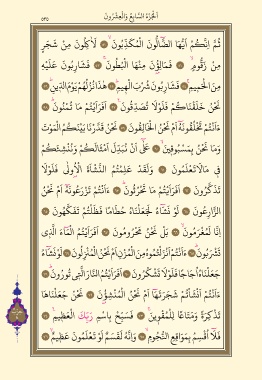 الجزء السابع والعشرون
٥٣٥
ثُمَّ إِنَّكُمْ أَيُّهَا الضَّالُّونَ الْمُكَذِّبُونَ ۝ لَآكِلُونَ مِنْ شَجَرٍ
مِنْ زَقُّومٍ ۝ فَمَالِؤُنَ مِنْهَا الْبُطُونَ ۝ فَشَارِبُونَ عَلَيْهِ
مِنَ الْحَمِيمِ ۝ فَشَارِبُونَ شُرْبَ الْهِيمِ ۝ هٰذَا نُزُلُهُمْ يَوْمَ الدِّينِ ۝
نَحْنُ خَلَقْنَاكُمْ فَلَوْلَا تُصَدِّقُونَ ۝ أَفَرَأَيْتُمْ مَا تُمْنُونَ ۝
ءَأَنْتُمْ تَخْلُقُونَهُ أَمْ نَحْنُ الْخَالِقُونَ ۝ نَحْنُ قَدَّرْنَا بَيْنَكُمُ الْمَوْتَ
وَمَا نَحْنُ بِمَسْبُوقِينَ ۝ عَلَى أَنْ نُبَدِّلَ أَمْثَالَكُمْ وَنُنْشِئَكُمْ
فِي مَا لَا تَعْلَمُونَ ۝ وَلَقَدْ عَلِمْتُمُ النَّشْأَةَ الْأُولَى فَلَوْلَا
تَذَكَّرُونَ ۝ أَفَرَأَيْتُمْ مَا تَحْرُثُونَ ۝ ءَأَنْتُمْ تَزْرَعُونَهُ أَمْ نَحْنُ
الزَّارِعُونَ ۝ لَوْ نَشَاءُ لَجَعَلْنَاهُ حُطَامًا فَظَلْتُمْ تَفَكَّهُونَ ۝
إِنَّا لَمُغْرَمُونَ ۝ بَلْ نَحْنُ مَحْرُومُونَ ۝ أَفَرَأَيْتُمُ الْمَاءَ الَّذِي
تَشْرَبُونَ ۝ ءَأَنْتُمْ أَنْزَلْتُمُوهُ مِنَ الْمُزْنِ أَمْ نَحْنُ الْمُنْزِلُونَ ۝ لَوْ نَشَاءُ
جَعَلْنَاهُ أُجَاجًا فَلَوْلَا تَشْكُرُونَ ۝ أَفَرَأَيْتُمُ النَّارَ الَّتِي تُورُونَ ۝
ءَأَنْتُمْ أَنْشَأْتُمْ شَجَرَتَهَا أَمْ نَحْنُ الْمُنْشِؤُنَ ۝ نَحْنُ جَعَلْنَاهَا
تَذْكِرَةً وَمَتَاعًا لِلْمُقْوِينَ ۝ فَسَبِّحْ بِاسْمِ رَبِّكَ الْعَظِيمِ ۝
فَلَا أُقْسِمُ بِمَوَاقِعِ النُّجُومِ ۝ وَإِنَّهُ لَقَسَمٌ لَوْ تَعْلَمُونَ عَظِيمٌ ۝